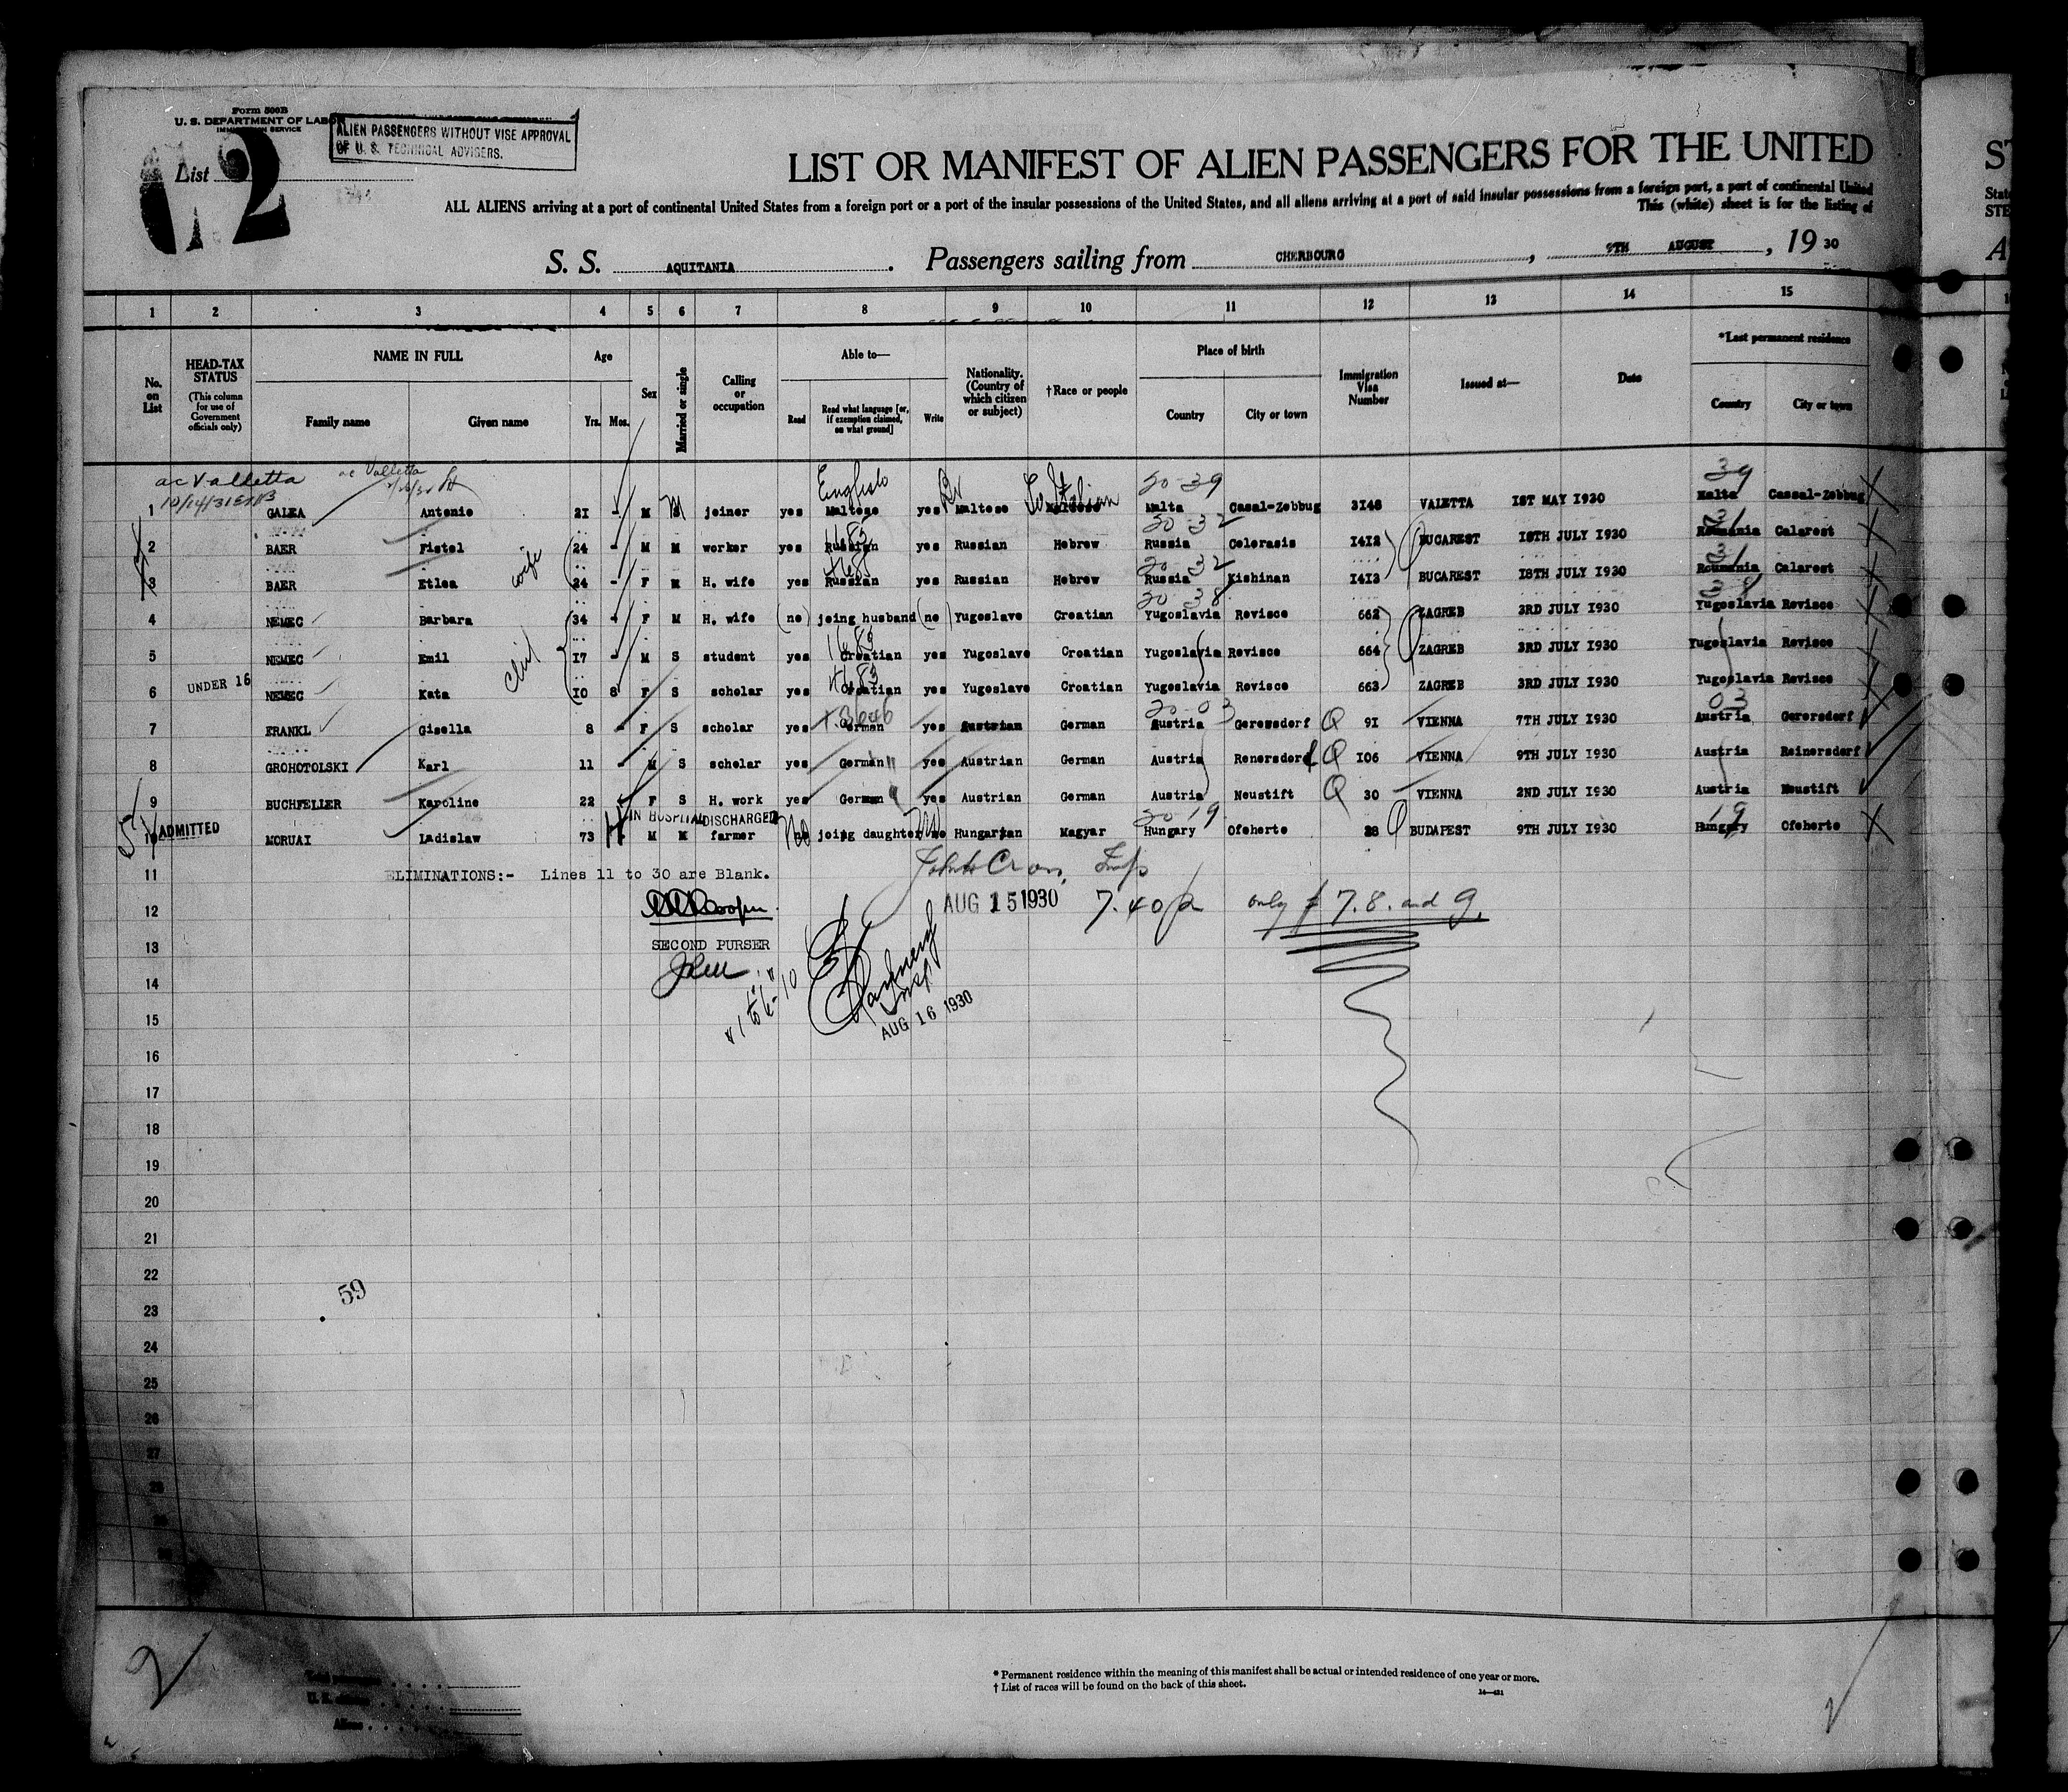 Form 500B
U. S. DEPARTMENT OF LABOR
IMMIGRATION SERVICE
ALIEN PASSENGERS WITHOUT VISE APPROVAL
OF U. S. TECHNICAL ADVISERS.
List 2
LIST OR MANIFEST OF ALIEN PASSENGERS FOR THE UNITED
ALL ALIENS arriving at a port of continental United States from a foreign port or a port of the insular possessions of the United States, and all aliens arriving at a port of said insular possessions from a foreign port, a port of continental United
This (white) sheet is for the listing of
S. S. AQUITANIA. Passengers sailing from CHERBOURG, 9TH AUGUST, 19 30
1 2 3 4 5 6 7 8 9 10 11 12 13 14 15
No. on List
HEAD-TAX STATUS (This column for use of Government officials only)
NAME IN FULL Family name Given name
Age Yrs. Mos.
Sex
Married or single
Calling or occupation
Able to— Read Read what language [or, if exemption claimed, on what ground] Write
Nationality. (Country of which citizen or subject)
†Race or people
Place of birth Country City or town
Immigration Visa Number
Issued at—
Date
*Last permanent residence Country City or town
ac Valletta ac Valletta English 20-39 39
10/14/31
1 GALEA Antonio 21 - M M joiner yes Maltese yes Maltese Italian Malta Casal-Zebbug 3148 VALETTA 1ST MAY 1930 Malta Cassal-Zebbug
20-32 31
2 BAER Fistel 24 - M M worker yes Russian yes Russian Hebrew Russia Colorasis 1412 BUCAREST 18TH JULY 1930 Roumania Calarest
wife 20 32 31
3 BAER Etlea 24 - F M H. wife yes Russian yes Russian Hebrew Russia Kishinan 1413 BUCAREST 18TH JULY 1930 Roumania Calarest
20-38 38
4 NEMEC Barbara 34 - F M H. wife (no) joing husband (no) Yugoslave Croatian Yugoslavia Revisce 662 ZAGREB 3RD JULY 1930 Yugoslavia Revisce
5 NEMEC Emil 17 - M S student yes Croatian yes Yugoslave Croatian Yugoslavia Revisce 664 ZAGREB 3RD JULY 1930 Yugoslavia Revisce
6 UNDER 16 NEMEC Kata 10 8 F S scholar yes Croatian yes Yugoslave Croatian Yugoslavia Revisce 663 ZAGREB 3RD JULY 1930 Yugoslavia Revisce
20-03 03
7 FRANKL Gisella 8 - F S scholar yes German yes Austrian German Austria Geresdorf 91 VIENNA 7TH JULY 1930 Austria Gerersdorf
8 GROHOTOLSKI Karl 11 - M S scholar yes German yes Austrian German Austria Renersdorf 106 VIENNA 9TH JULY 1930 Austria Reinersdorf
9 BUCHFELLER Karoline 22 F S H. work yes German yes Austrian German Austria Neustift 30 VIENNA 2ND JULY 1930 Austria Neustift
IN HOSPITAL DISCHARGED 20 19 19
10 ADMITTED MORUAI Ladislaw 73 M M farmer no joing daughter no Hungarian Magyar Hungary Ofeherto 28 BUDAPEST 9TH JULY 1930 Hungary Ofeherto
11 ELIMINATIONS:- Lines 11 to 30 are Blank.
12 AUG 15 1930 7.40 only 7.8. and 9.
13 SECOND PURSER
14
1 to 6-10
15 AUG 16 1930
16
17
18
19
20
21
22
23 59
24
25
26
27
28
2
* Permanent residence within the meaning of this manifest shall be actual or intended residence of one year or more.
† List of races will be found on the back of this sheet.